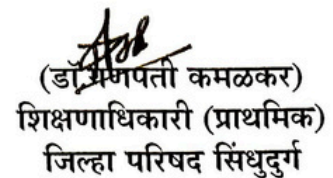 (डॉ गणपती कमळकर)
शिक्षणाधिकारी (प्राथमिक)
जिल्हा परिषद सिंधुदुर्ग